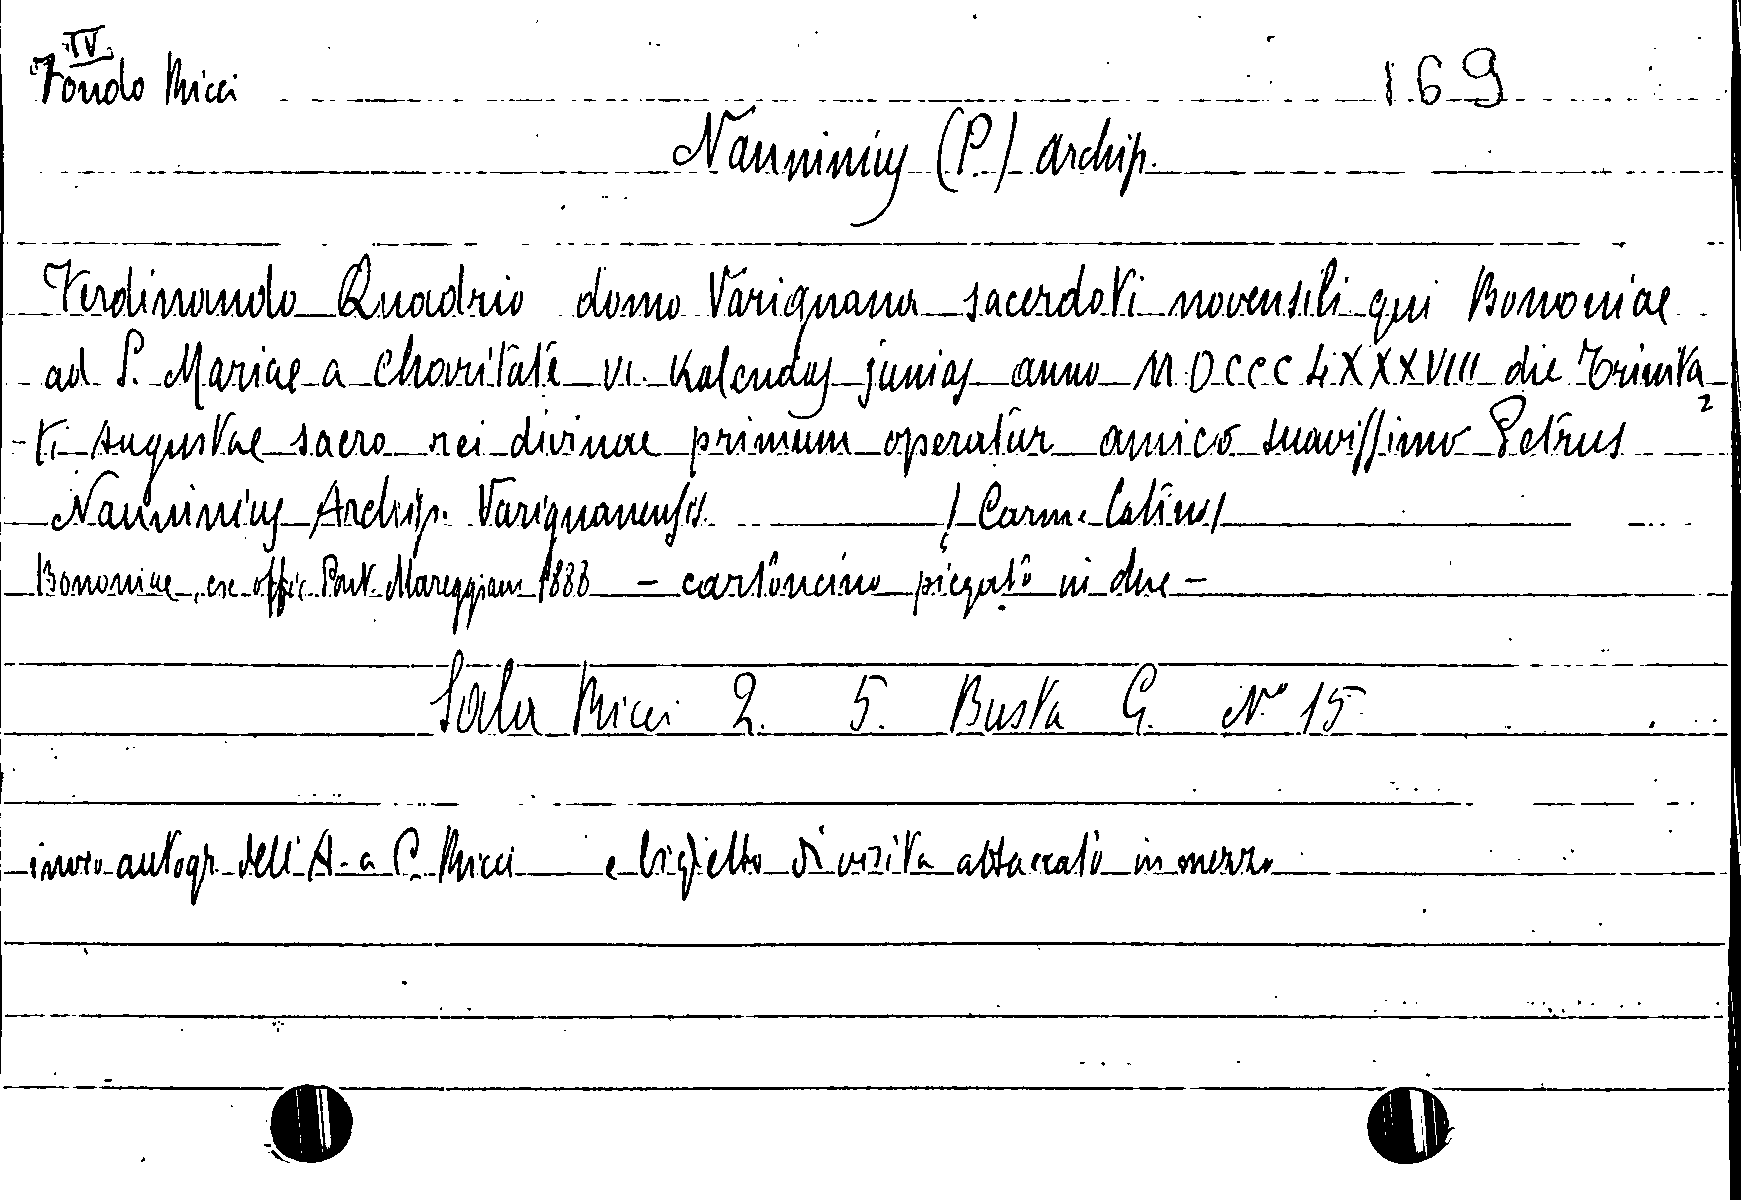 IV
Fondo Ricci 169
Nanninius (P.) archip.
Ferdinando Quadrio domo Varignana sacerdoti novensili qui Bononiae
ad S. Mariae a Charitate VI. Kalendas junias anno MDCCCLXXXVIII die Trinita
-ti Augustae sacro rei divinae primum operatur amico suavissimo Petrus
Nanninius Archip. Varignanensis. / Carm. Latius /
Bononiae, ex offic. Pont. Mareggiani 1888 - cartoncino piegato in due -
Sala Ricci 2. 5. Busta G. N° 15
invio autogr. dell'A. a C. Ricci e biglietto di visita attaccato in mezzo